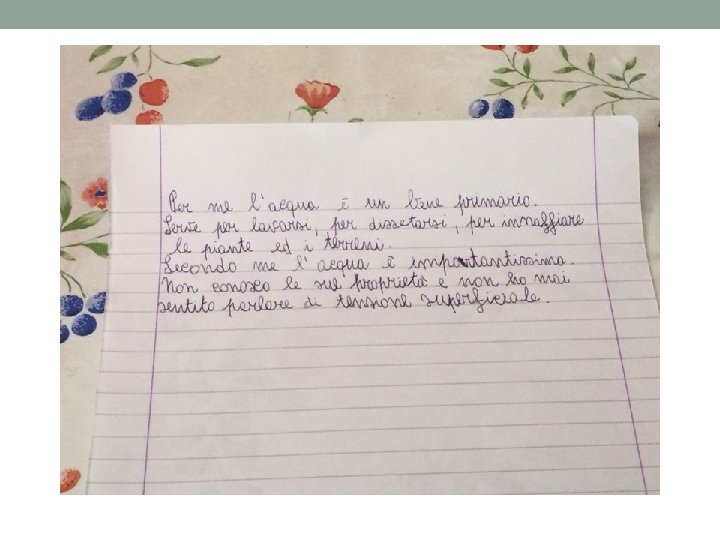 Per me l'acqua è un bene primario.
Serve per lavarsi, per dissetarsi, per innaffiare
le piante ed i terreni.
Secondo me l'acqua è importantissima.
Non conosco le sue proprietà e non ho mai
sentito parlare di tensione superficiale.